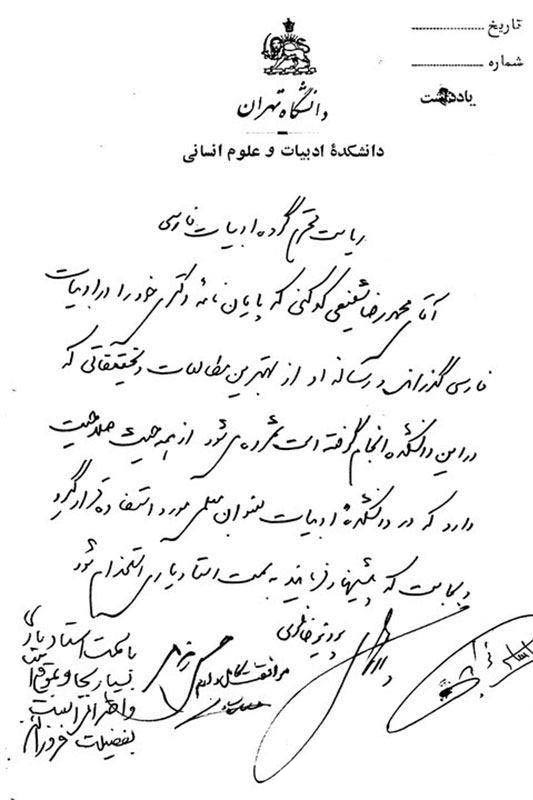 تاریخ
شماره
یادداشت
دانشگاه تهران
دانشکدهٔ ادبیات و علوم انسانی
ریاست محترم گروه ادبیات فارسی
آقای محمد رضا شفیعی کدکنی که پایان نامهٔ دکتری خود را در ادبیات
فارسی گذرانده و رساله او از بهترین مطالعات و تحقیقاتی که
در این دانشکده انجام گرفته است شمرده می شود از همه حیث صلاحیت
دارد که در دانشکدهٔ ادبیات بعنوان معلمی مورد استفاده قرار گیرد
و بجاست که پیشنهاد فرمایند به سمت استادیاری استخدام شود
پرویز خانلری
موافقت کامل دارم
با سمت استادیاری
بسیار بجا و بموقع است
و احترامی است
بفضیلت فروزانفر